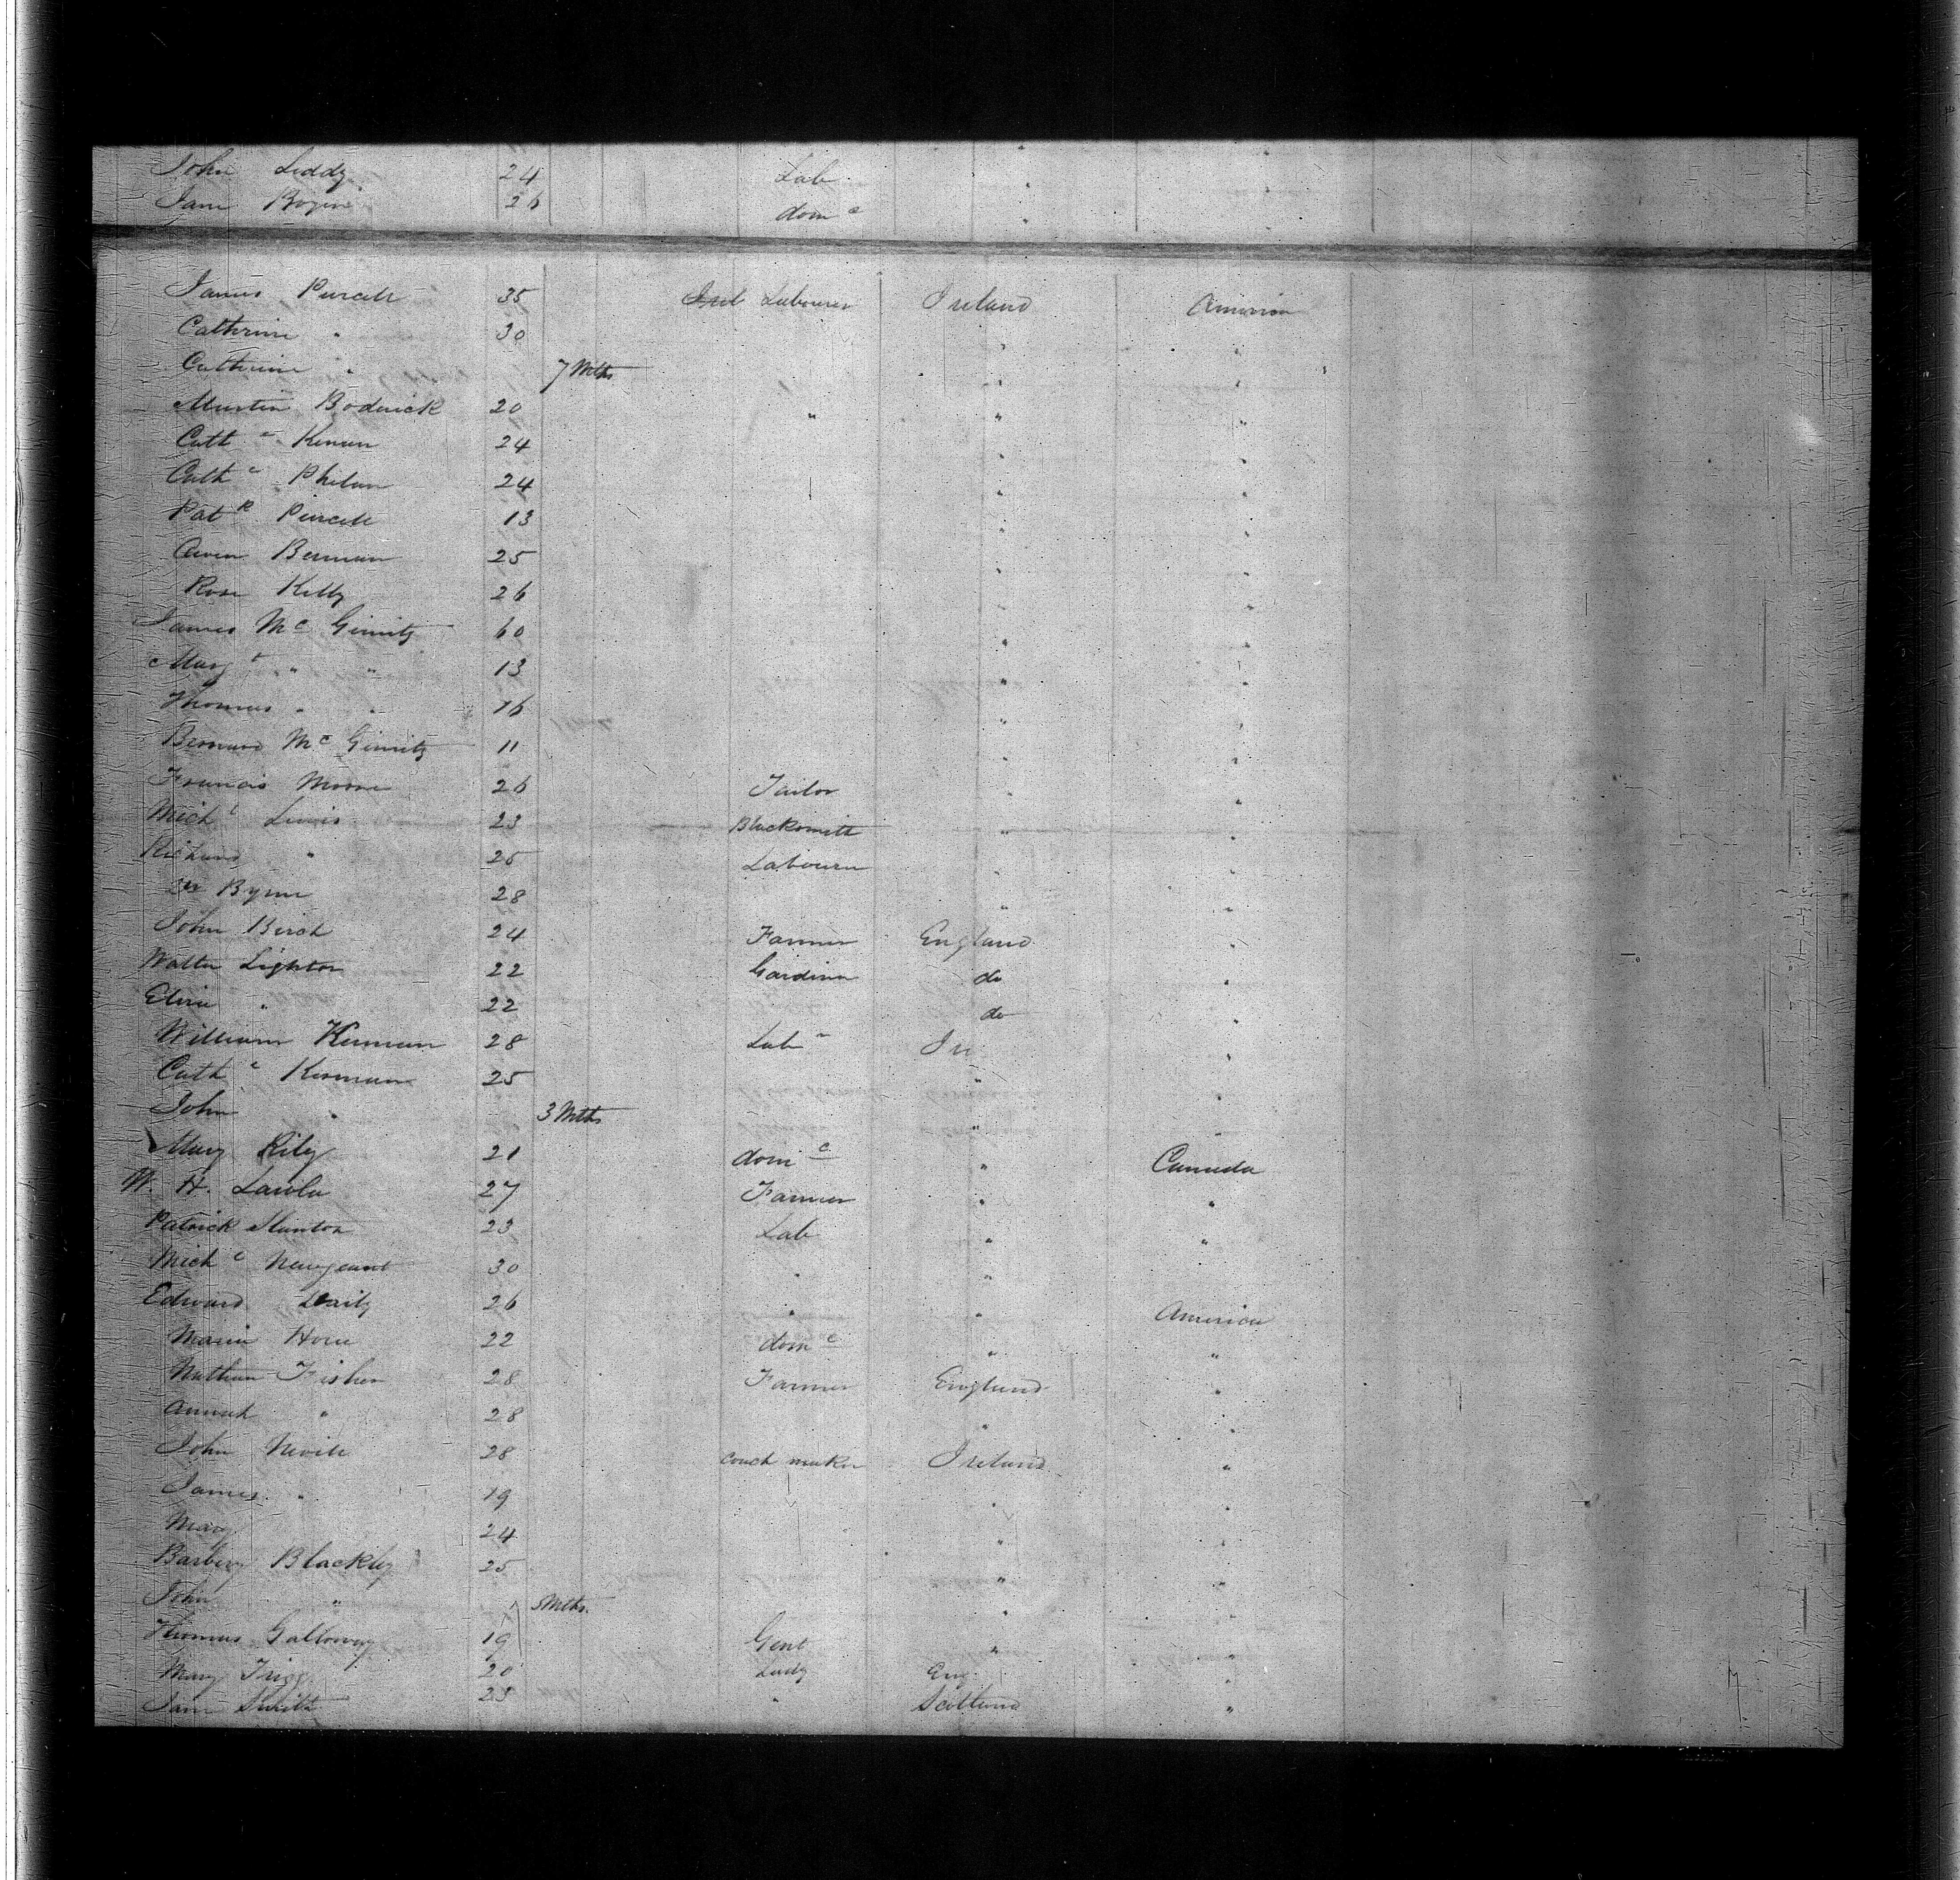 John Leddy 24 Lab "
Jane 26 dom c "
James Purcell 35 Labourer Ireland America
Cathrine " 30 " "
Cathrine " 7 Mths " "
Martin Bodrick 20 " " "
Cath e Kenan 24 " "
Cath e Phelan 24 " "
Pat k Purcell 13 " "
Owen Bernnan 25 " "
Rose Kelly 26 " "
James Mc Ginnity 60 " "
Marg t " " 13 " "
Thomas " " 16 " "
Bernard Mc Ginnity 11 " "
Francis Moore 26 Tailor " "
Mich l Lewis 23 Blacksmith " "
Richard " 25 Labourer " "
Byrne 28 " "
John Birch 24 Farmer England "
Walter Lighton 22 Gardiner do "
Eliza " 22 do "
William Kernan 28 Lab r Ire "
Cath e Kernan 25 " "
John " 3 Mths " "
Mary Rily 21 dom c " Canada
W. H. Lawlor 27 Farmer " "
Patrick Stanton 23 Lab " "
Mich l Newgeant 30 " "
Edward 26 " " America
Maria Horn 22 dom c " "
Nathan Fisher 28 Farmer England "
Annah " 28 " "
John Nevill 28 Coach maker Ireland "
James " 19 " "
Mary 24 " "
Barbery Blackley 25 " "
John " 5 Mths. " "
Thomas Galloway 19 Gent " "
Mary Trigg 20 Lady Eng "
Jane Smith 25 " Scotland "